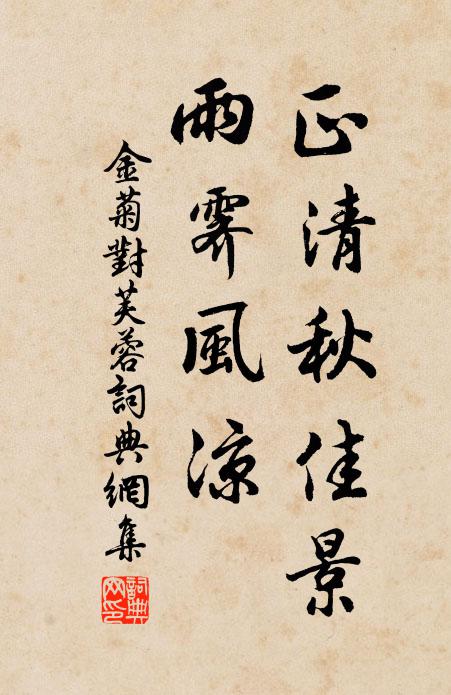 正清秋佳景
雨霽風涼
金菊對芙蓉詞典網集
詞典
網印